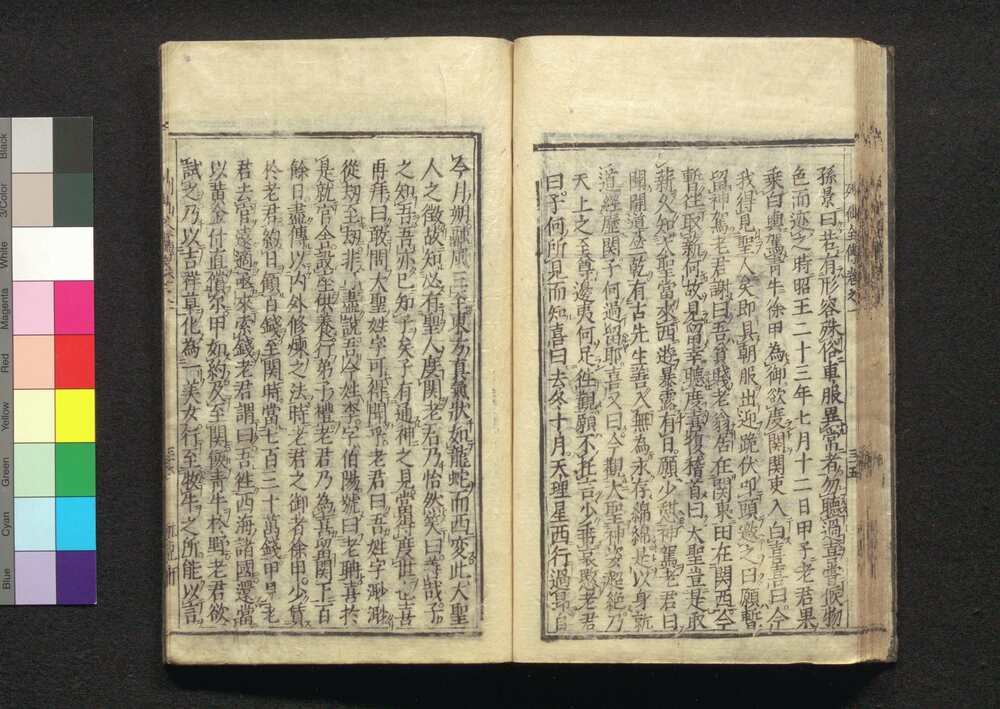 孫景曰若有形容殊俗車服異常者勿聽過喜嘗候物
色而迹之時昭王二十三年七月十二日甲子老君果
乘白輿駕青牛徐甲為御欲度関関吏入白喜喜曰今
我得見聖人矣即具朝服出迎跪伏叩頭邀之曰願暫
留神駕老君謝曰吾貧賤老翁居在関東田在関西今
暫往取薪何故見留幸聽度喜復稽首曰大聖豈是取
薪久知大聖當來西遊暴露有日願少憩神駕老君曰
聞開道竺乾有古先生善入無為永存綿綿是以身新
道經歷関子何過留耶喜又曰今觀大聖神姿超絶乃
天上之至尊邊夷何足往觀願不託言少垂哀愍老君
曰子何所見而知喜曰去冬十月天理星西行過昴自
今月朔融風三至東方真氣狀如龍蛇而西変此大聖
人之徵故知必有聖人度関老君乃怡然笑曰善哉子
之知吾吾亦已知子矣子有通神之見當得度世也喜
再拜曰敢問大聖姓字可得聞乎老君曰吾姓字渺渺
從劫至劫非可盡說吾今姓李字伯陽號曰老聃喜於
是就官舍設坐供養行弟子禮老君乃為喜留関下百
餘日盡傳以内外修煉之法時老君之御者徐甲少賃
於老君約日顧百錢至関時當七百二十萬錢甲見老
君去官遠適亟來索錢老君謂曰吾往西海諸國還當
以黄金什直償尔甲如約及至関飯青牛於野老君欲
試之乃以吉祥草化為一美女行至牧牛之所能以言
三五
Black
3/Color
White
Magenta
Red
Yellow
Green
Cyan
Blue